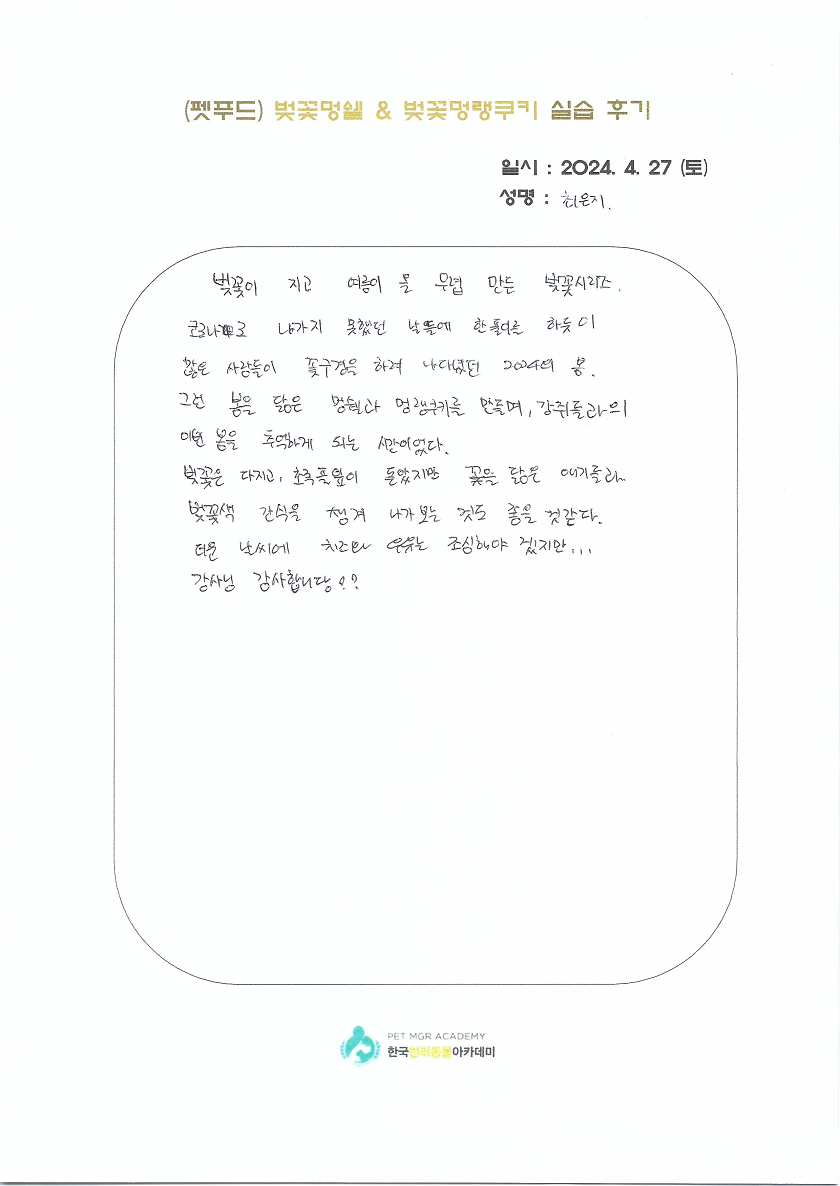 (펫푸드) 벚꽃멍쉘 & 벚꽃멍랭쿠키 실습 후기
일시 : 2024. 4. 27 (토)
성명 : 최은지.
벚꽃이 지고 여름이 올 무렵 만든 벚꽃시리즈.
코로나로 나가지 못했던 날들에 한풀이를 하듯이
많은 사람들이 꽃구경을 하려 나다녔던 2024의 봄.
그런 봄을 닮은 멍쉘과 멍랭쿠키를 만들며, 강쥐들과의
이번 봄을 추억하게 되는 시간이었다.
벚꽃은 다지고, 초록풀잎이 돋았지만 꽃을 닮은 애기들과
벚꽃색 간식을 챙겨 나가보는 것도 좋을 것같다.
더운 날씨에 치즈와 우유는 조심해야 겠지만...
강사님 감사합니당
PET MGR ACADEMY
한국반려동물아카데미